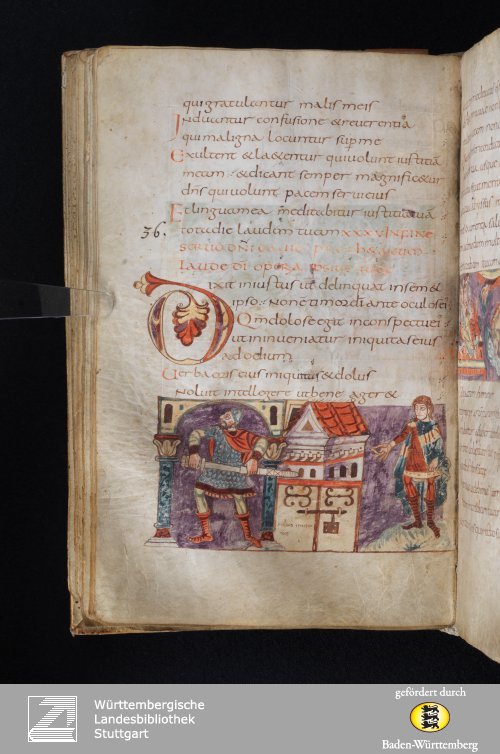 qui gratulantur malis meis
Induantur confusione & reuerentia
qui maligna locuntur sup me
Exultent & laetentur qui uolunt iustitia
meam & dicant semper magnific&ur
dns qui uolunt pacem serui eius
Et lingua mea meditabitur iustitia tua
36. tota die laudem tuam XXXV IN FINE
SERUO DNI
LAUDE DI OPERA
Dixit iniustus ut delinquat in sem&
ipso Non e timor di ante oculos ei
Qm dolose egit in conspectu ei
ut inueniatur iniquitas eius
ad odium
Uerba oris eius iniquitas & dolus
noluit intellegere ut bene ager&
Württembergische
Landesbibliothek
Stuttgart
gefördert durch
Baden-Württemberg